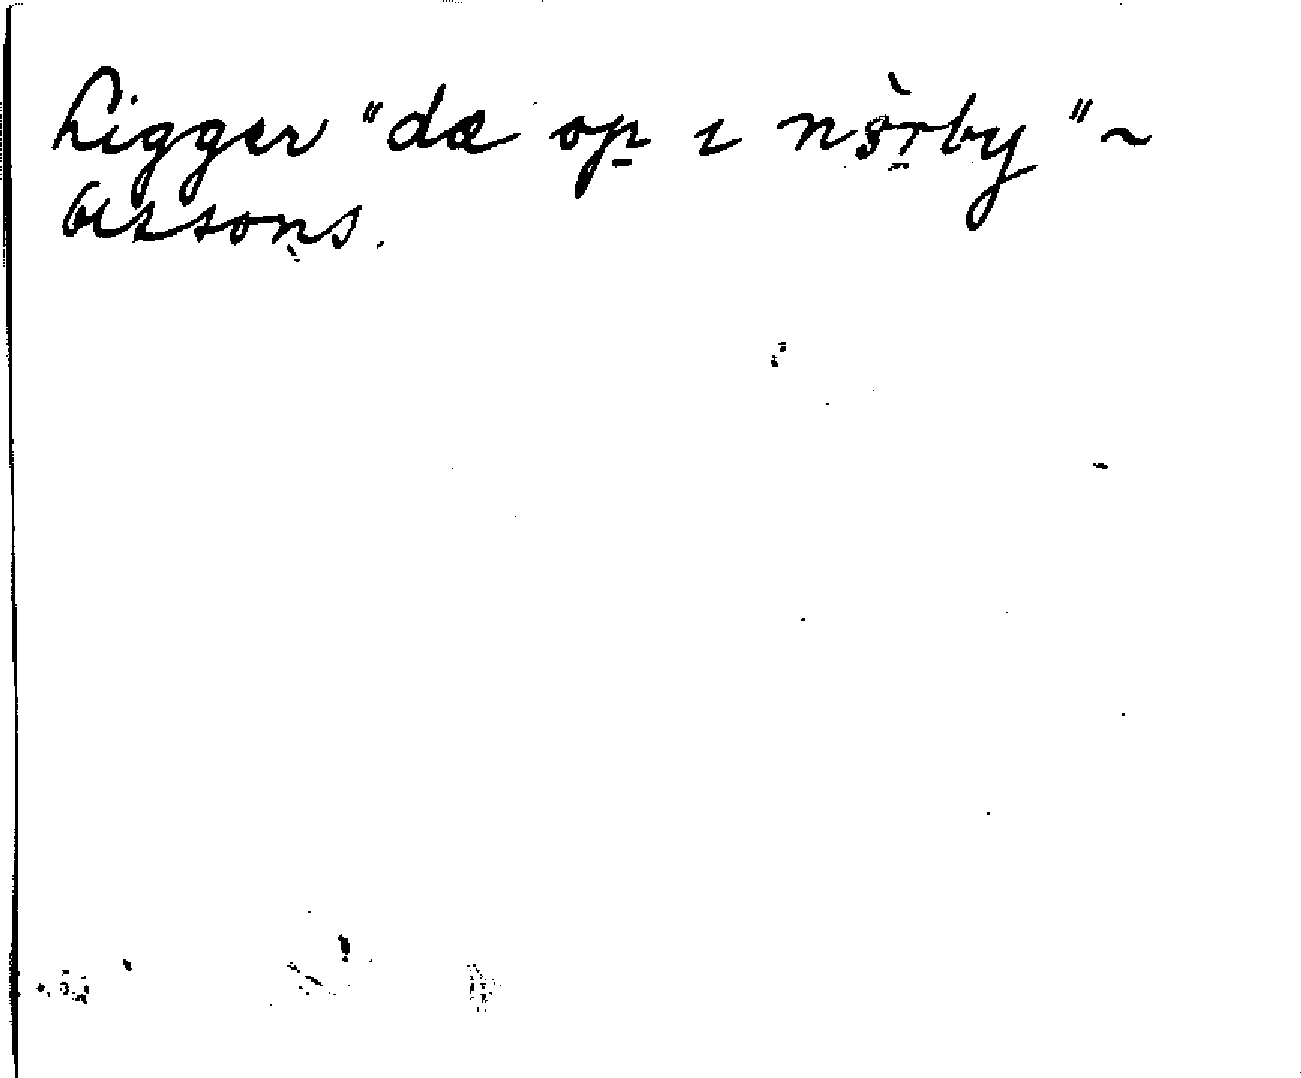 Ligger "dæ op ı nørby" ~
bıssons.